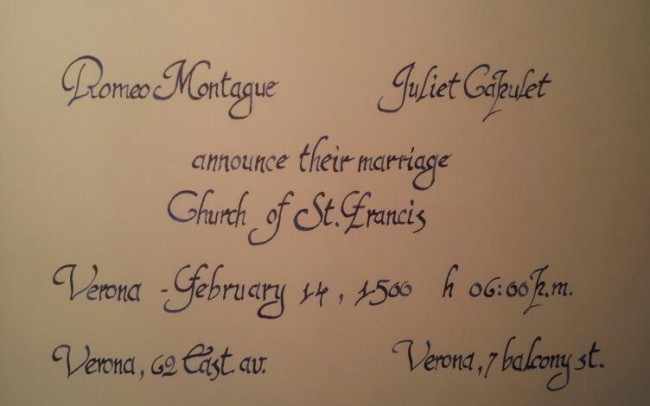 Romeo Montague Juliet Capulet
announce their marriage
Church of St. Francis
Verona - February 14, 1500 h 06:00 p.m.
Verona, 62 East. av. Verona, 7 balcony st.